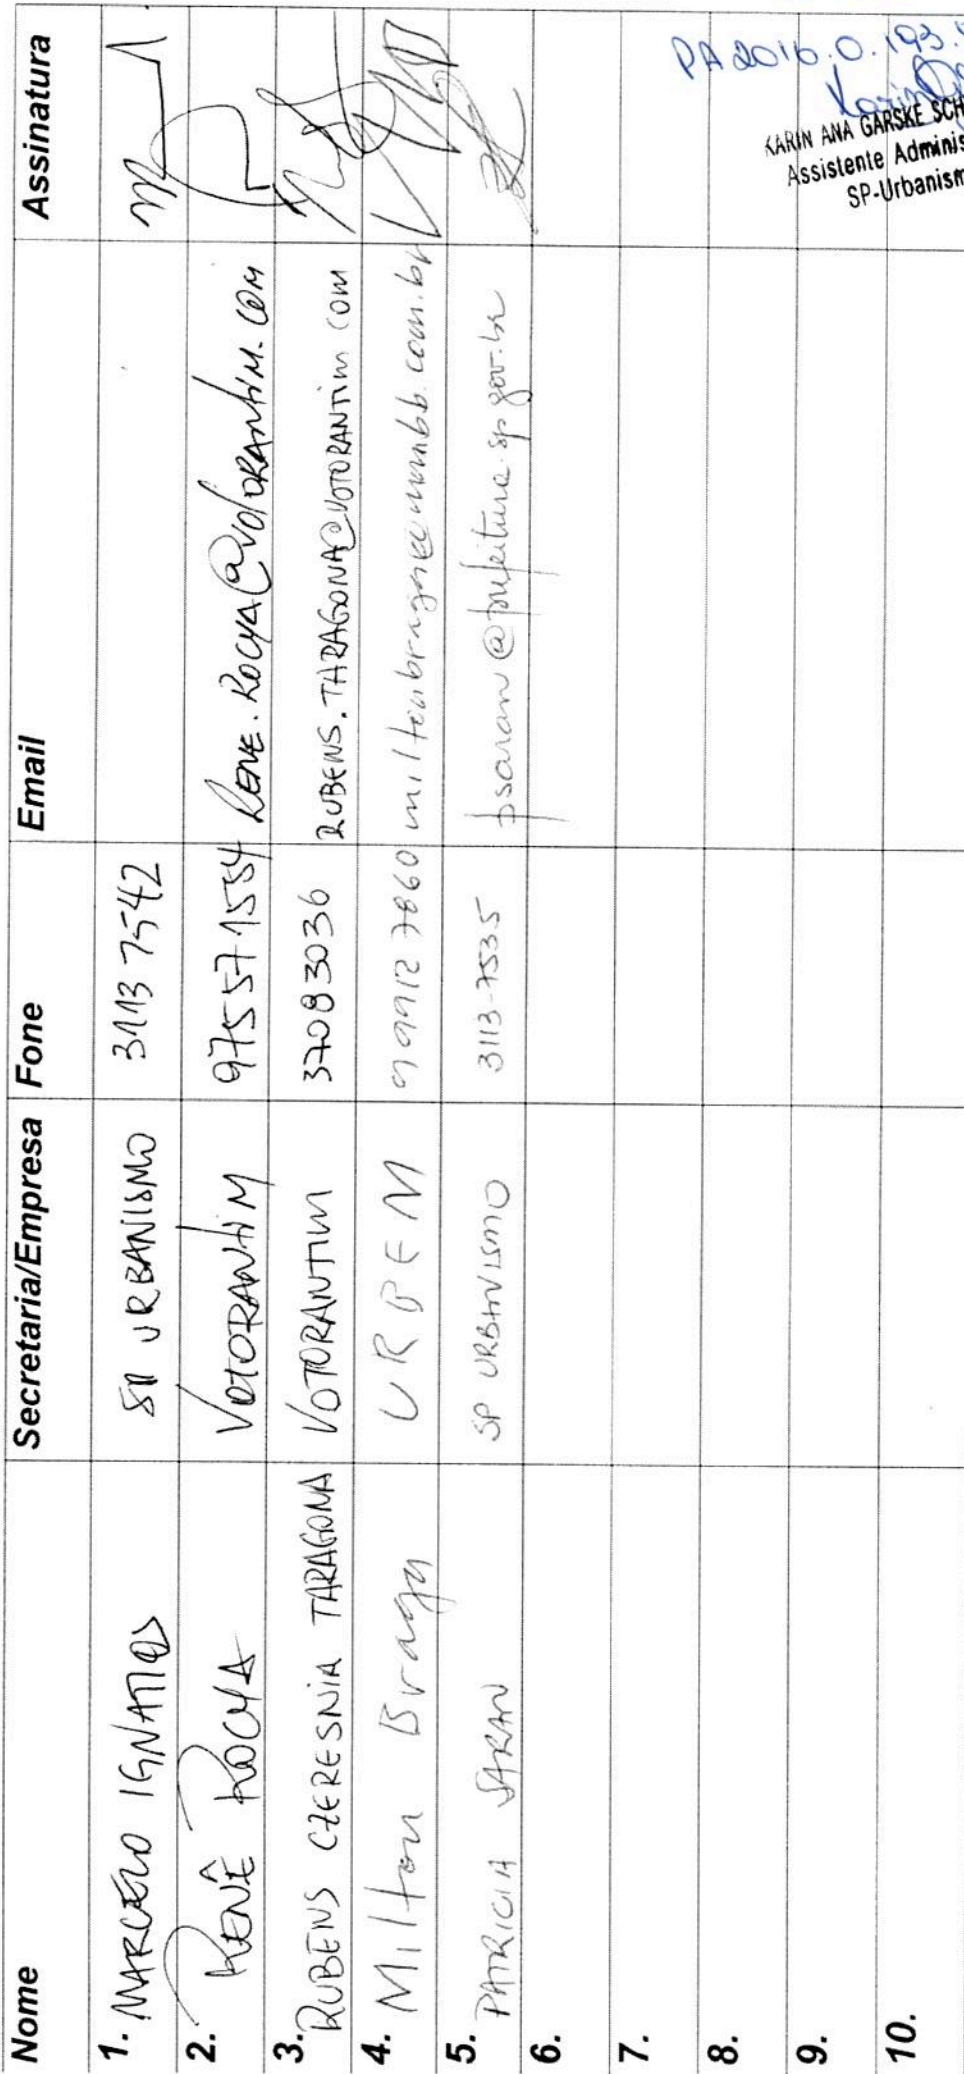 Nome Secretaria/Empresa Fone Email Assinatura
1. MARCELO IGNATIOS SP URBANISMO 3113 7542
2. RENÊ ROCHA VOTORANTIM 97557 1554 RENE.ROCHA@VOTORANTIM.COM
3. RUBENS CZERESNIA TARAGONA VOTORANTIM 3708 3036 RUBENS.TARAGONA@VOTORANTIM COM
4. Milton Braga URBEM 99912 7860 miltonbraga@mmbb.com.br
5. PATRICIA SARAN SP URBANISMO 3113-7535 psaran@prefeitura.sp.gov.br
6.
7.
8.
9.
10.
PA 2016.0.193.
Karin
KARIN ANA GARSKE SCH
Assistente Adminis
SP-Urbanism